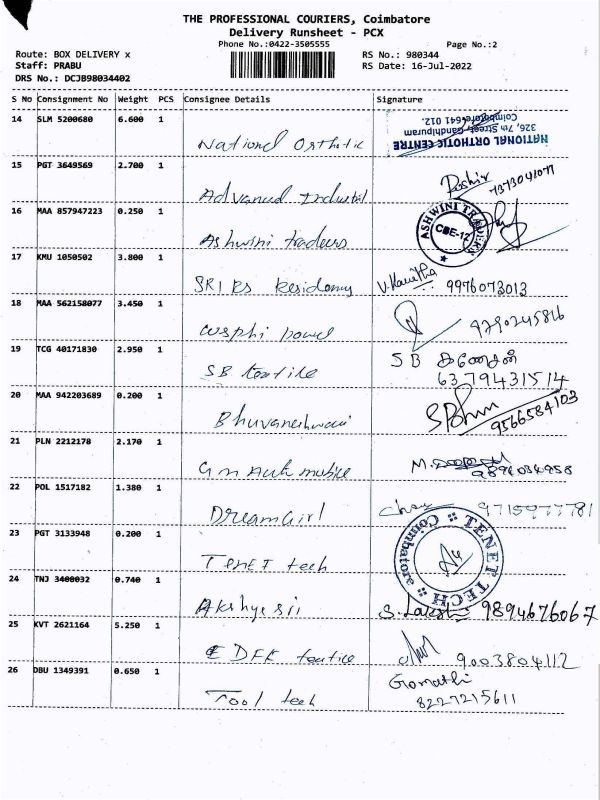 THE PROFESSIONAL COURIERS, Coimbatore
Delivery Runsheet - PCX
Phone No.:0422-3505555
Page No.:2
Route: BOX DELIVERY x
Staff: PRABU
DRS No.: DCJB98034402
RS No.: 980344
RS Date: 16-Jul-2022
S No Consignment No Weight PCS Consignee Details Signature
14 SLM 5200680 6.600 1
National Orthotic
NATIONAL ORTHOTIC CENTRE
326, 7th Street, Gandhipuram
Coimbatore-641 012.
15 PGT 3649569 2.700 1
Advanced Industrial
7373041077
16 MAA 857947223 0.250 1
Ashwini traders
ASHWINI TRADERS
CBE-12
17 KMU 1050502 3.800 1
SRI RS Residency
V. Kavitha 9976073013
18 MAA 562158077 3.450 1
9290245816
19 TCG 40171830 2.950 1
SB textile
SB கணேசன்
6379431514
20 MAA 942203689 0.200 1
Bhuvaneshwari
9566584103
21 PLN 2212178 2.170 1
G m Auto mobile
9894034958
22 POL 1517182 1.380 1
DreamGirl
9715977781
23 PGT 3133948 0.200 1
TENET tech
TENET TECH
Coimbatore
24 TNJ 3408032 0.740 1
Akshya sri
9894676067
25 KVT 2621164 5.250 1
EDFK textile
9003804112
26 DBU 1349391 0.650 1
Tool tech
Gomathi
8227215611